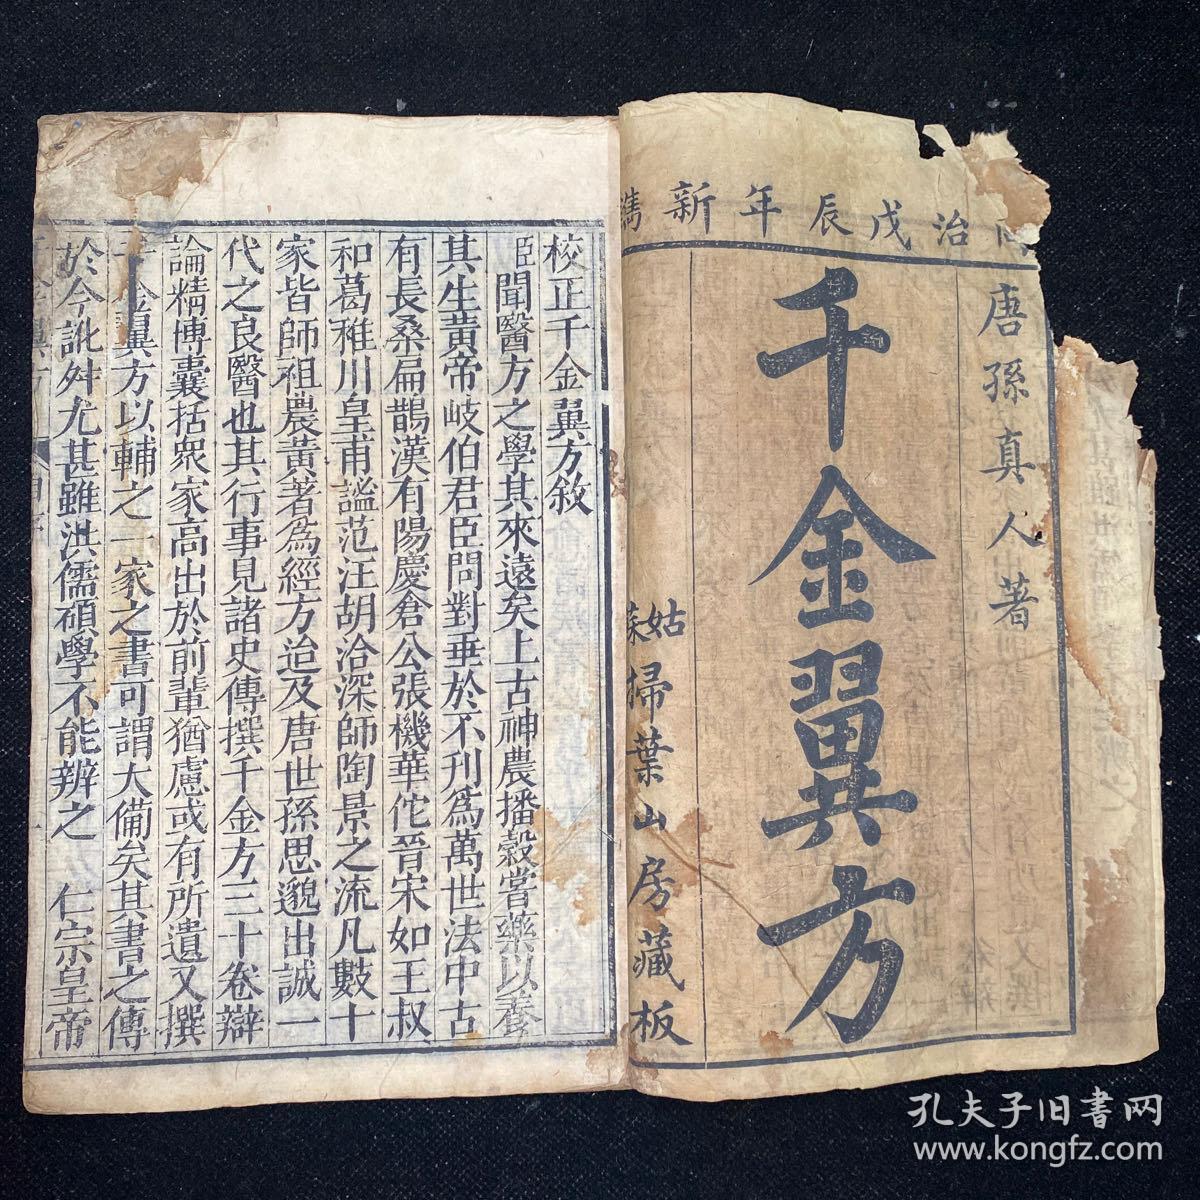 治戊辰年新鐫
唐孫真人著
千金翼方
姑蘇掃葉山房藏板
校正千金翼方敘
臣聞醫方之學其來遠矣上古神農播穀嘗藥以養
其生黃帝岐伯君臣問對垂於不刊為萬世法中古
有長桑扁鵲漢有陽慶倉公張機華佗晉宋如王叔
和葛稚川皇甫謐范汪胡洽深師陶景之流凡數十
家皆師祖農黃著為經方迨及唐世孫思邈出誠一
代之良醫也其行事見諸史傳撰千金方三十卷辯
論精博囊括眾家高出於前輩猶慮或有所遺又撰
千金翼方以輔之一家之書可謂大備矣其書之傳
於今訛舛尤甚雖洪儒碩學不能辨之　仁宗皇帝
孔夫子旧書网
www.kongfz.com